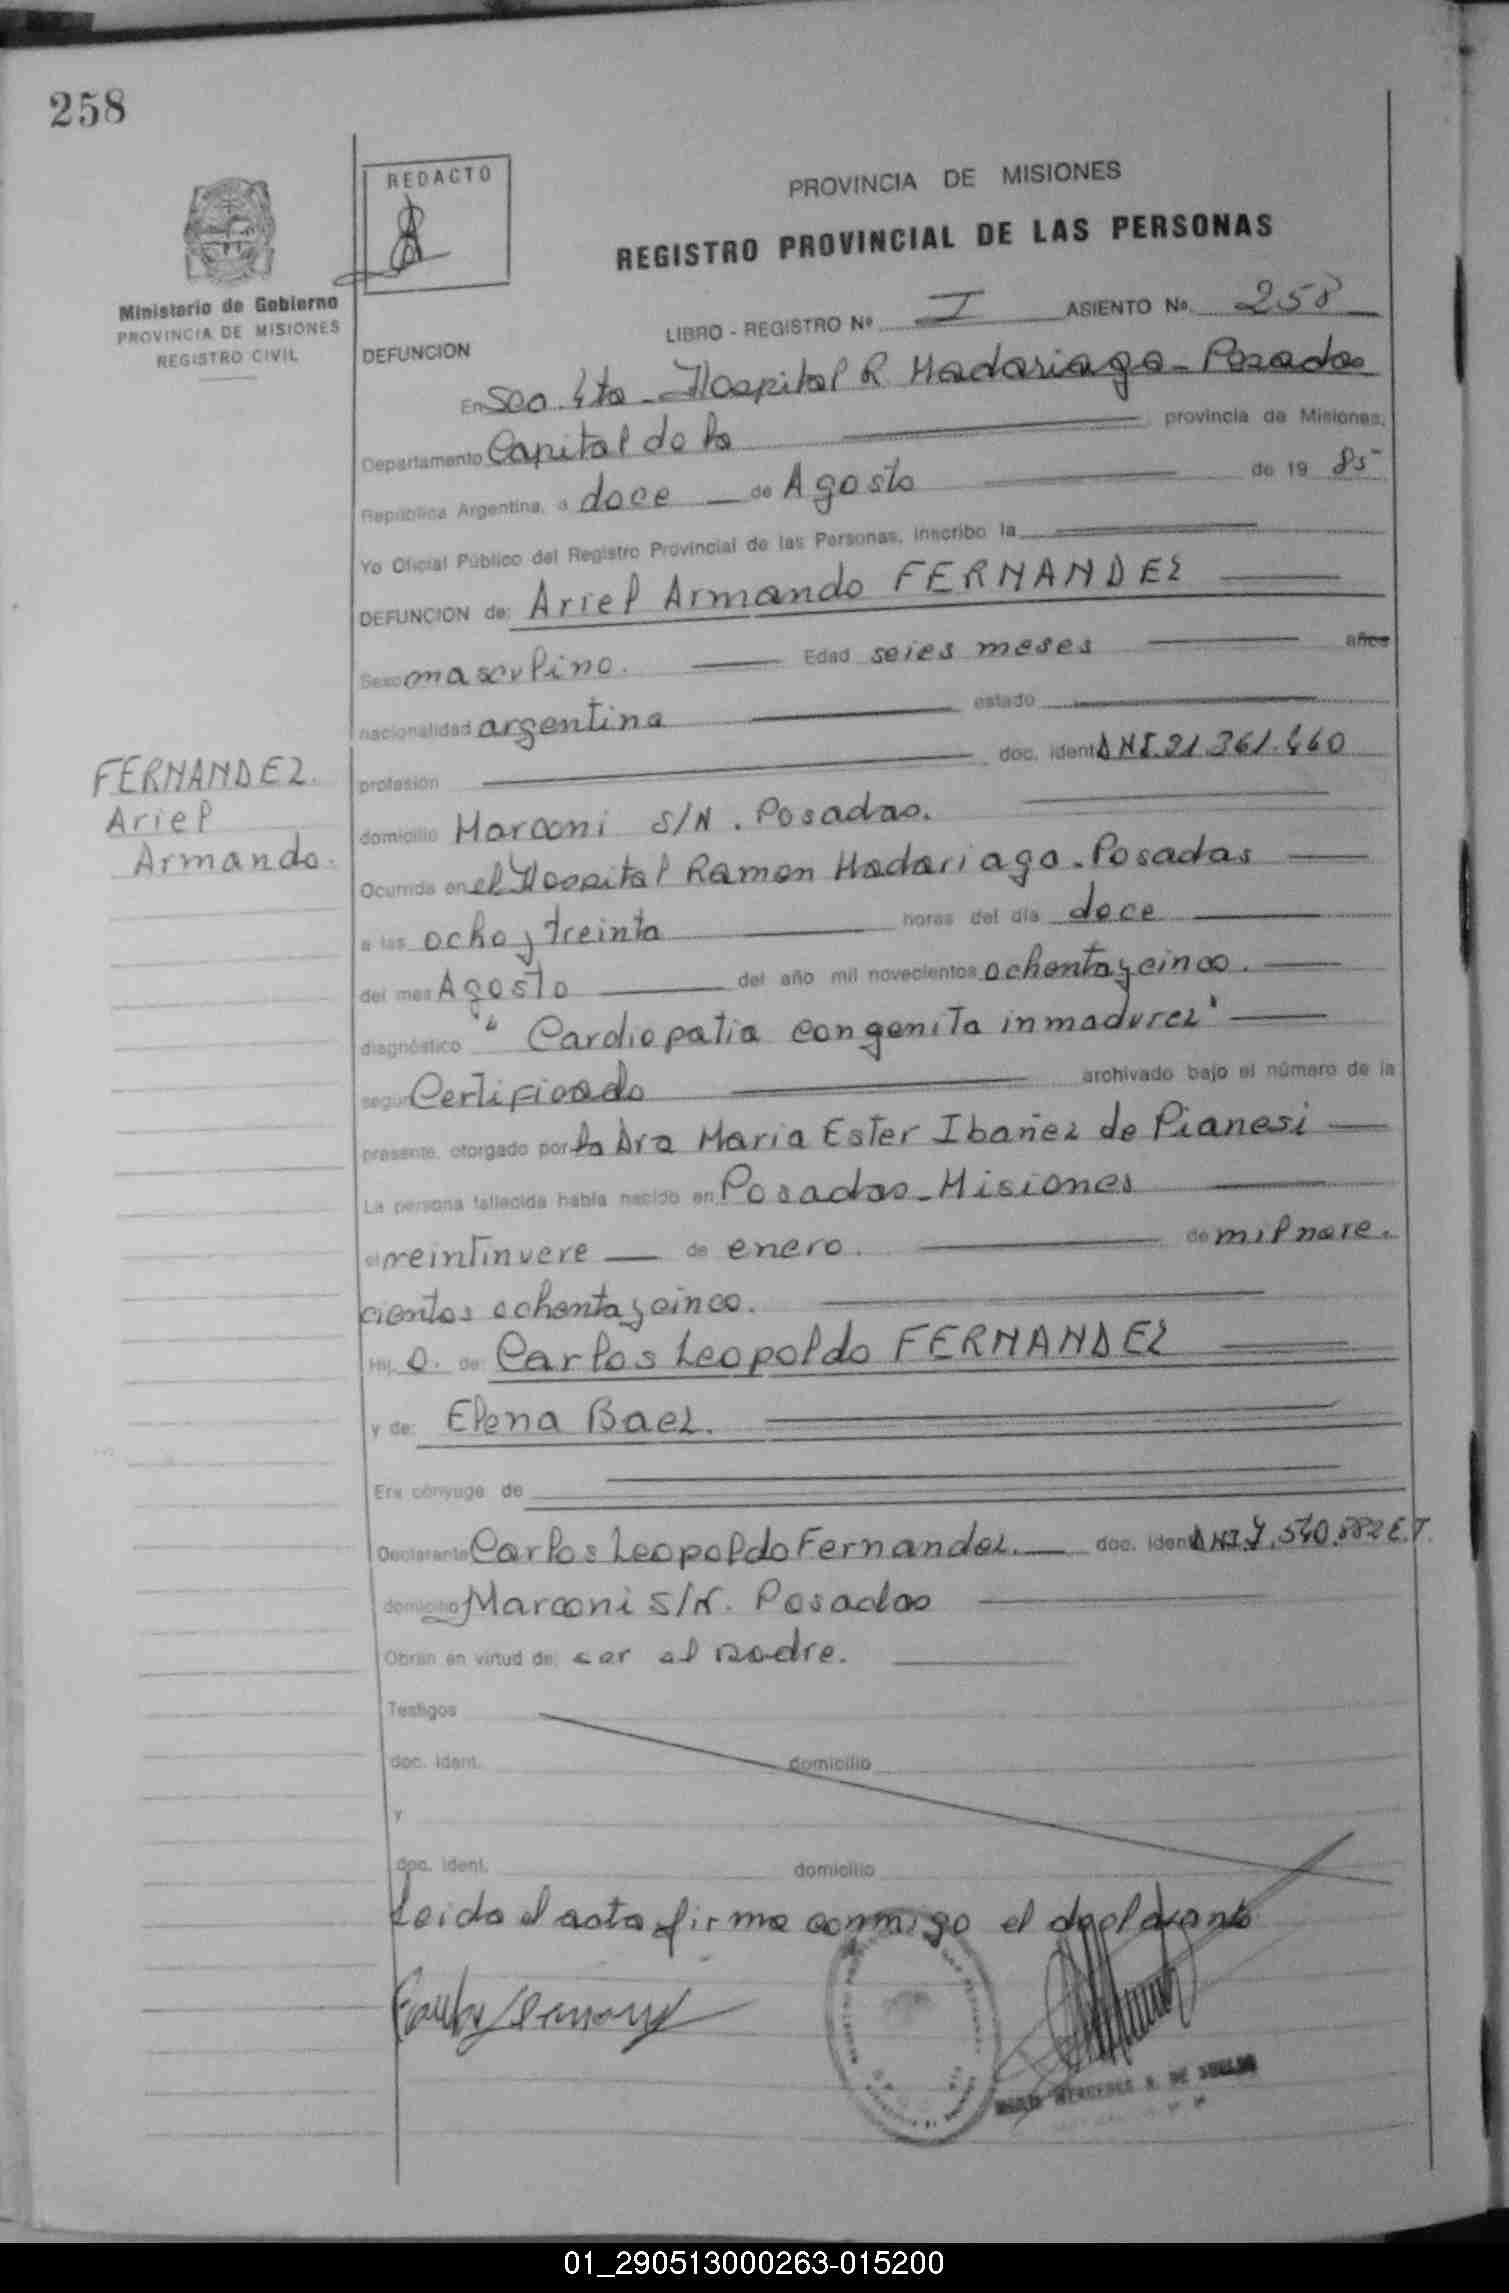 258
REDACTO
PROVINCIA DE MISIONES
REGISTRO PROVINCIAL DE LAS PERSONAS
Ministerio de Gobierno
PROVINCIA DE MISIONES
REGISTRO CIVIL
LIBRO - REGISTRO Nº I ASIENTO Nº 258
DEFUNCION
En Sec. 4ta - Hospital R. Madariaga - Posadas
Departamento Capital de la provincia de Misiones,
República Argentina, a doce de Agosto de 19 85
Yo Oficial Público del Registro Provincial de las Personas, inscribo la
DEFUNCION de: Ariel Armando FERNANDEZ
Sexo masculino. Edad seies meses años
nacionalidad argentina estado
profesión doc. ident. DNI. 31.361.460
FERNANDEZ.
Ariel
Armando.
domicilio Marconi S/N. Posadas.
Ocurrida en el Hospital Ramon Madariaga - Posadas
a las ocho y treinta horas del día doce
del mes Agosto del año mil novecientos ochenta y cinco.
diagnóstico "Cardiopatia congenita inmadurez"
según Certificado archivado bajo el número de la
presente, otorgado por la Dra Maria Ester Ibañez de Pianesi
La persona fallecida había nacido en Posadas - Misiones
el veintinueve de enero. de mil nove.
cientos ochenta y cinco.
Hij o. de: Carlos Leopoldo FERNANDEZ
y de: Elena Baez.
Era cónyuge de
Declarante Carlos Leopoldo Fernandez. doc. ident. DNI 7.540.882 E.T.
domicilio Marconi S/N. Posadas
Obran en virtud de: ser el padre.
Testigos
doc. ident. domicilio
y
doc. ident. domicilio
Leida el acta firma conmigo el declarante
MERCEDES DE
01_290513000263-015200